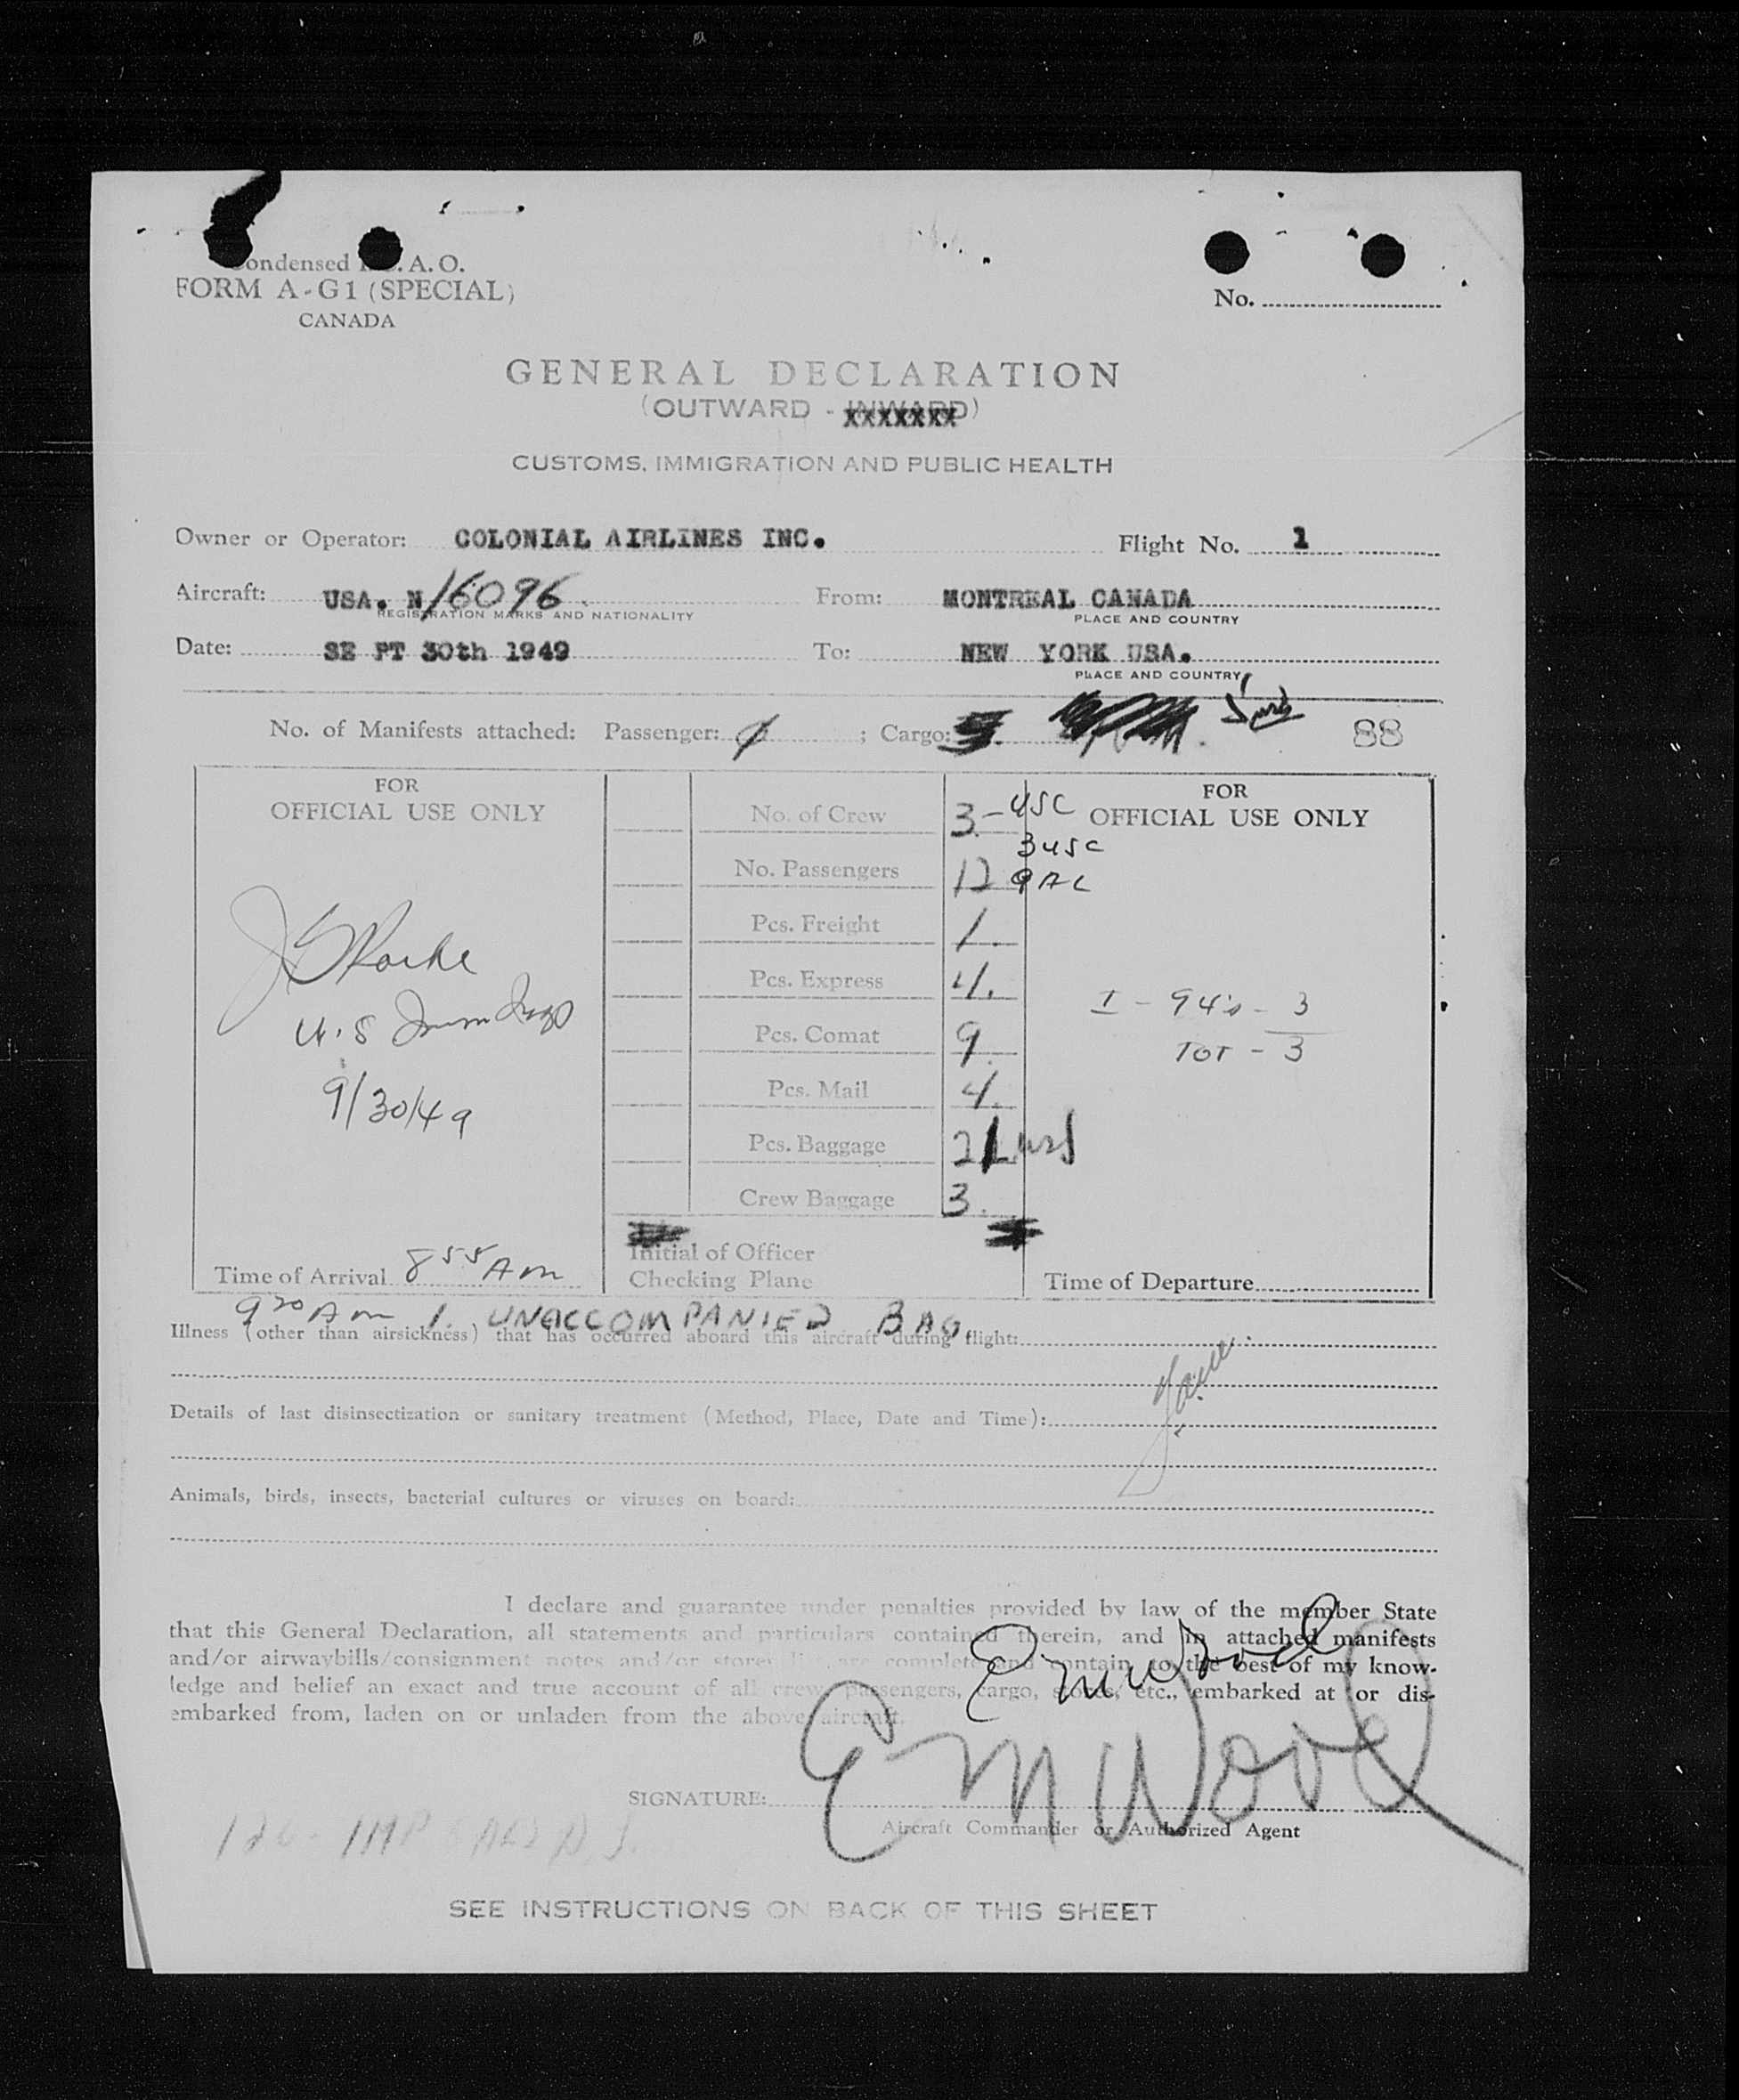 Condensed I.C.A.O.
FORM A-G1 (SPECIAL)
CANADA
No.
GENERAL DECLARATION
(OUTWARD - INWARD)
CUSTOMS, IMMIGRATION AND PUBLIC HEALTH
Owner or Operator: COLONIAL AIRLINES INC. Flight No. 1
Aircraft: USA. N16096 From: MONTREAL CANADA
REGISTRATION MARKS AND NATIONALITY PLACE AND COUNTRY
Date: SE PT 30th 1949 To: NEW YORK USA.
PLACE AND COUNTRY
No. of Manifests attached: Passenger: ; Cargo: 88
FOR
OFFICIAL USE ONLY
No. of Crew 3 - USC
FOR
OFFICIAL USE ONLY
3 USC
No. Passengers 12 9 AL
Pcs. Freight 1.
Pcs. Express 4.
I - 94's - 3
Pcs. Comat 9.
TOT - 3
U.S
9/30/49
Pcs. Mail 4.
Pcs. Baggage 21
Crew Baggage 3.
Initial of Officer
Checking Plane
Time of Arrival 8 55 Am
Time of Departure
9 20 Am 1. UNACCOMPANIED BAG
Illness (other than airsickness) that has occurred aboard this aircraft during flight:
Details of last disinsectization or sanitary treatment (Method, Place, Date and Time):
Animals, birds, insects, bacterial cultures or viruses on board:
I declare and guarantee under penalties provided by law of the member State
that this General Declaration, all statements and particulars contained therein, and in attached manifests
and/or airwaybills/consignment notes and/or stores are complete and contain to the best of my know-
ledge and belief an exact and true account of all crew, passengers, cargo, stores, etc., embarked at or dis-
embarked from, laden on or unladen from the above aircraft.
E M Wood
SIGNATURE: E M Wood
Aircraft Commander or Authorized Agent
SEE INSTRUCTIONS ON BACK OF THIS SHEET